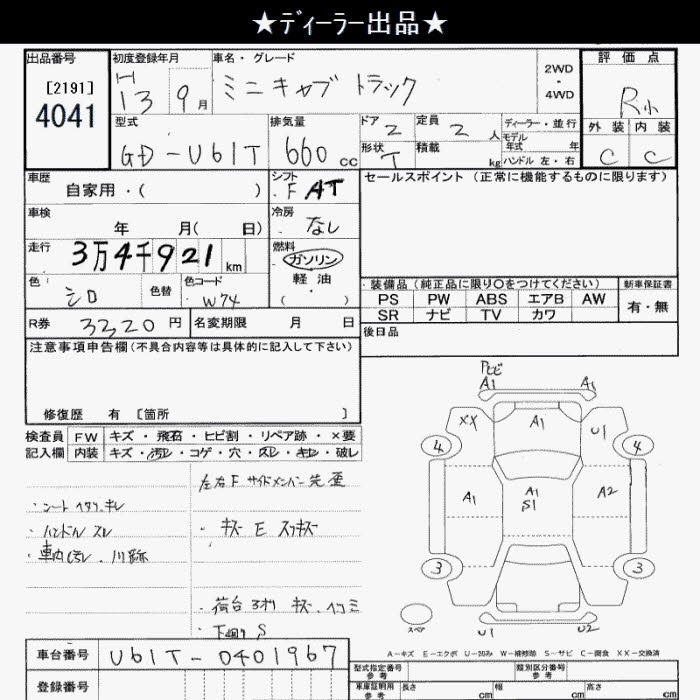 ★ディーラー出品★
出品番号 初度登録年月 車名・グレード 2WD・4WD 評価点
[2191] H13 9月 ミニキャブ トラック R小
4041
型式 排気量 ドア 定員 ディーラー・並行 外装 内装
GD-U61T 660cc 2 2人 モデル年式 年 C C
形状 積載 T kg ハンドル 左・右
車歴 シフト セールスポイント（正常に機能するものに限ります）
自家用・( ) F AT
車検 冷房
年 月( 日) なし
走行 燃料
3万4千921km ガソリン
色 色替 色コード 軽油
シロ W74 ( ・ )
装備品（純正品に限り○をつけてください） 新車保証書
PS PW ABS エアB AW 有・無
SR ナビ TV カワ
R券 3320円 名変期限 月 日 後日品
注意事項申告欄(不具合内容等は具体的に記入して下さい)
修復歴 有 [箇所 ]
検査員 FW キズ・飛石・ヒビ割・リペア跡・×要
記入欄 内装 キズ・汚レ・コゲ・穴・スレ・キレ・破レ
左右F サイドメンバー先歪
・シート ヘタリ、キレ
・ハンドル スレ
・キズ E スリキズ
・荷台 3オリ キズ、ヘコミ
・下廻り S
A1 A1
XX A1 U1
4 4
A1 A1 S1 A2
3 3
スペア U1 U2
A－キズ E－エクボ U－凹み W－補修跡 S－サビ C－腐食 XX－交換済
車台番号 U61T-0401967
登録番号
型式指定番号 参考 類別区分番号 参考
車庫証明用 参考 長さ cm 幅 cm 高さ cm